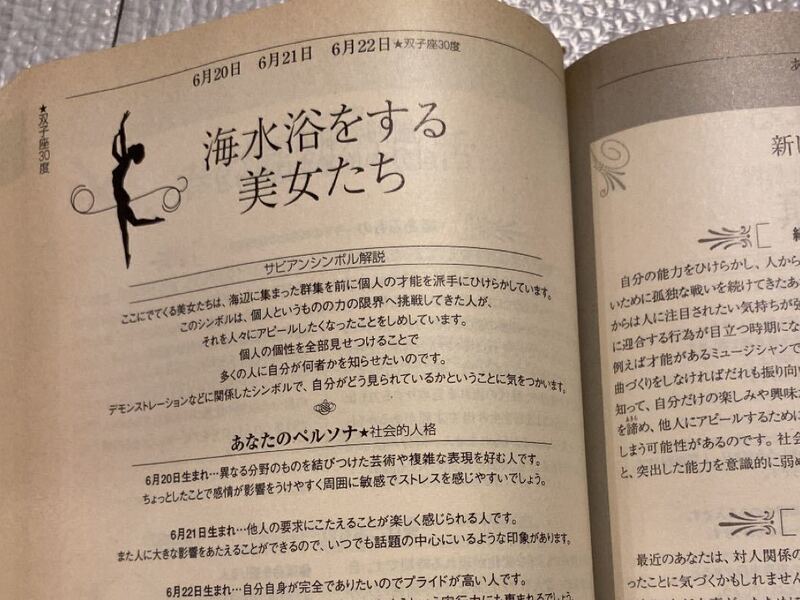 6月20日 6月21日 6月22日★双子座30度
★双子座30度
海水浴をする
美女たち
サビアンシンボル解説
ここにでてくる美女たちは、海辺に集まった群集を前に個人の才能を派手にひけらかしています。
このシンボルは、個人というものの力の限界へ挑戦してきた人が、
それを人々にアピールしたくなったことをしめしています。
個人の個性を全部見せつけることで
多くの人に自分が何者かを知らせたいのです。
デモンストレーションなどに関係したシンボルで、自分がどう見られているかということに気をつかいます。
あなたのペルソナ★社会的人格
6月20日生まれ…異なる分野のものを結びつけた芸術や複雑な表現を好む人です。
ちょっとしたことで感情が影響をうけやすく周囲に敏感でストレスを感じやすいでしょう。
6月21日生まれ…他人の要求にこたえることが楽しく感じられる人です。
また人に大きな影響をあたえることができるので、いつでも話題の中心にいるような印象があります。
6月22日生まれ…自分自身が完全でありたいのでプライドが高い人です。
あ
新
自分の能力をひけらかし、人から
いために孤独な戦いを続けてきたあ
からは人に注目されたい気持ちが
に迎合する行為が目立つ時期にな
例えば才能があるミュージシャンで
曲づくりをしなければだれも振り向い
知って、自分だけの楽しみや興味
を諦め、他人にアピールするために
しまう可能性があるのです。社会
と、突出した能力を意識的に弱め
最近のあなたは、対人関係の
ったことに気づくかもしれません